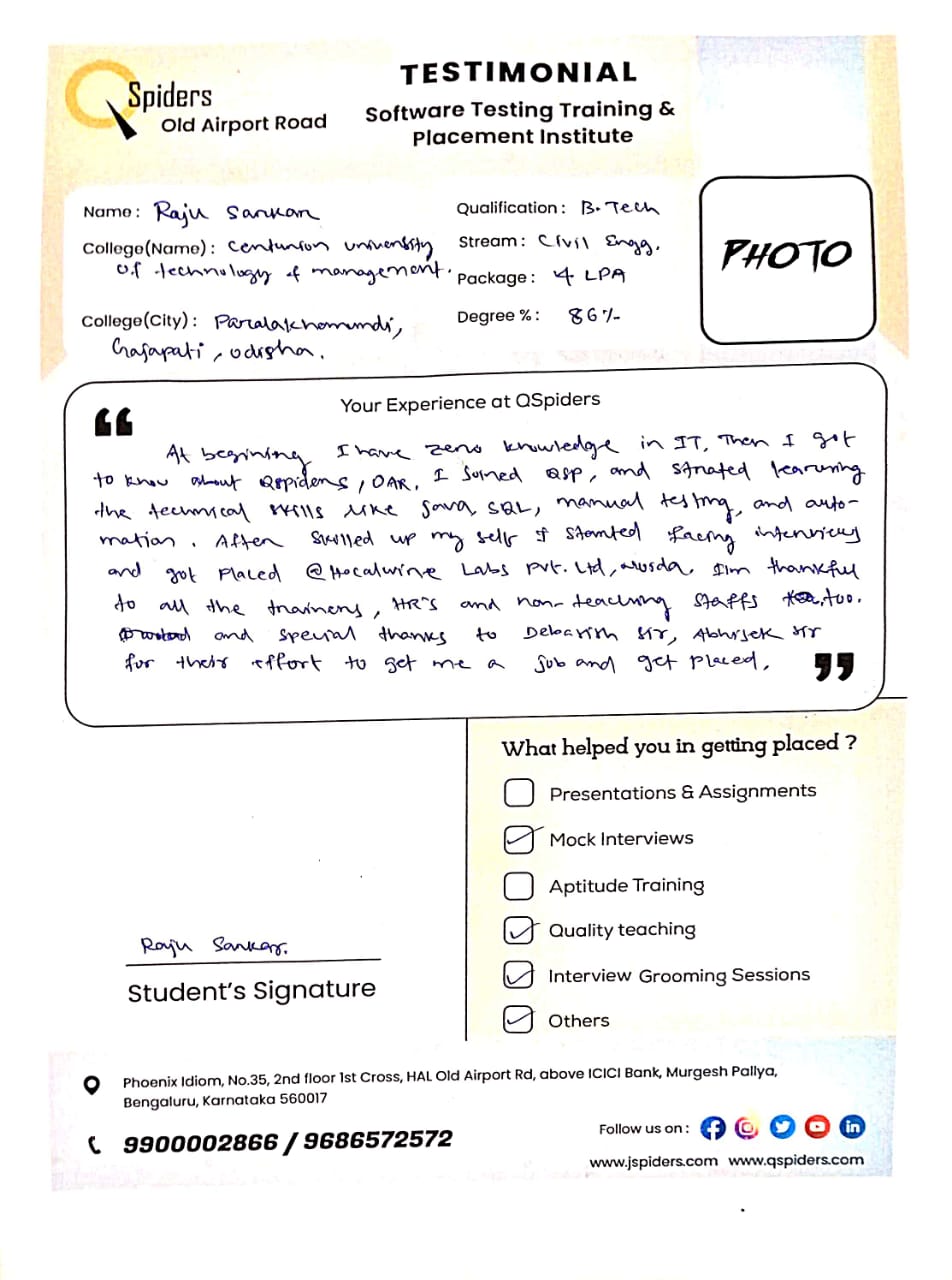 QSpiders
Old Airport Road
TESTIMONIAL
Software Testing Training &
Placement Institute
Name : Raju Sarkar
College(Name) : Centurion University
of technology & management.
College(City) : Paralakhemundi,
Gajapati, odisha.
Qualification : B. Tech
Stream : Civil Engg.
Package : 4 LPA
Degree % : 86%
PHOTO
Your Experience at QSpiders
At begining I have zero knowledge in IT, Then I got
to know about Qspiders, OAR, I Joined QSP, and started learning
the technical skills like Java, SQL, manual testing, and auto-
mation. After skilled up my self I started facing interviews
and got placed @ Labs Pvt. Ltd, I'm thankful
to all the trainers, HR's and non-teaching staffs too.
and special thanks to Debasish sir, Abhisek sir
for their effort to get me a job and get placed.
Raju Sarkar.
Student's Signature
What helped you in getting placed ?
Presentations & Assignments
Mock Interviews
Aptitude Training
Quality teaching
Interview Grooming Sessions
Others
Phoenix Idiom, No.35, 2nd floor 1st Cross, HAL Old Airport Rd, above ICICI Bank, Murgesh Pallya,
Bengaluru, Karnataka 560017
9900002866 / 9686572572
Follow us on :
www.jspiders.com www.qspiders.com